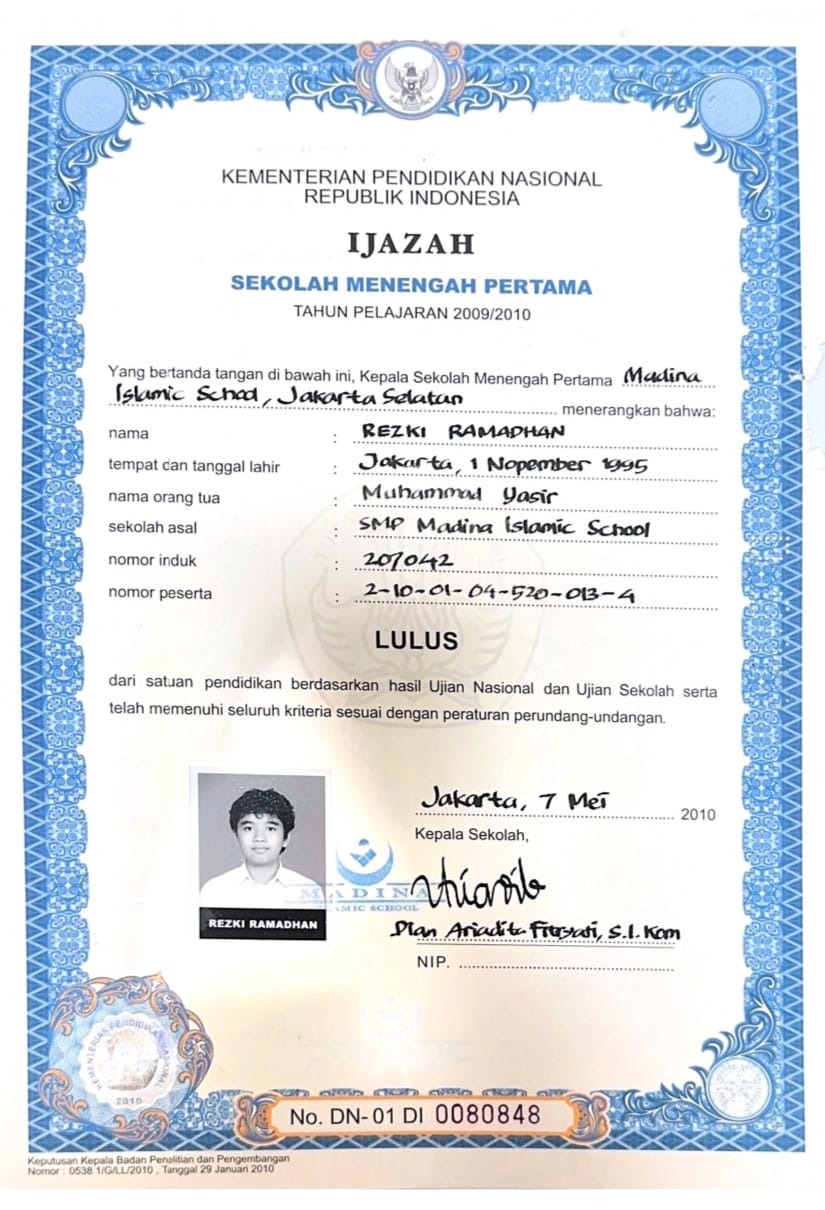 KEMENTERIAN PENDIDIKAN NASIONAL
REPUBLIK INDONESIA
IJAZAH
SEKOLAH MENENGAH PERTAMA
TAHUN PELAJARAN 2009/2010
Yang bertanda tangan di bawah ini, Kepala Sekolah Menengah Pertama Madina
Islamic School, Jakarta Selatan menerangkan bahwa:
nama : REZKI RAMADHAN
tempat dan tanggal lahir : Jakarta, 1 Nopember 1995
nama orang tua : Muhammad Yasir
sekolah asal : SMP Madina Islamic School
nomor induk : 207042
nomor peserta : 2-10-01-04-520-013-4
LULUS
dari satuan pendidikan berdasarkan hasil Ujian Nasional dan Ujian Sekolah serta
telah memenuhi seluruh kriteria sesuai dengan peraturan perundang-undangan.
Jakarta, 7 Mei 2010
Kepala Sekolah,
MADINA
ISLAMIC SCHOOL
REZKI RAMADHAN
Dian Ariadita Fitryati, S.I.Kom
NIP.
KEMENTERIAN PENDIDIKAN NASIONAL
2010
No. DN-01 DI 0080848
Keputusan Kepala Badan Penelitian dan Pengembangan
Nomor : 0538.1/G/LL/2010 , Tanggal 29 Januari 2010